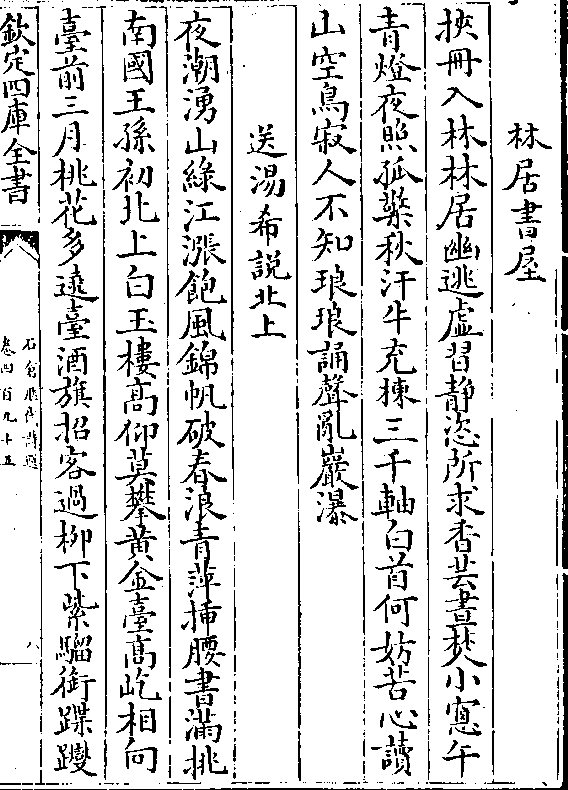 林居書屋
挾冊入林林居幽逃虛習静恣所求香芸晝焚小窻午
青燈夜照孤檠秋汗牛充棟三千軸白首何妨苦心讀
山空鳥寂人不知琅琅誦聲亂巖瀑
送湯希説北上
夜潮湧山綠江漲飽風錦帆破春浪青萍挿腰書滿挑
南國王孫初北上白玉樓髙仰莫攀黄金臺髙屹相向
臺前三月桃花多遶臺酒旗招客過柳下紫騮銜蹀躞
欽定四庫全書
石倉歴代詩選
卷四百九十五
八